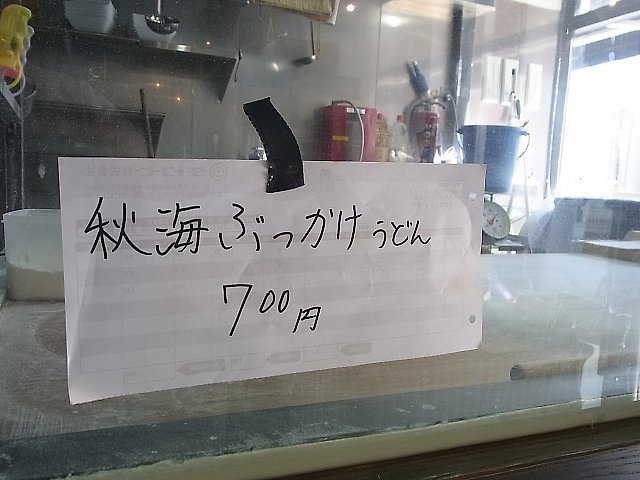 秋海ぶっかけうどん
700円